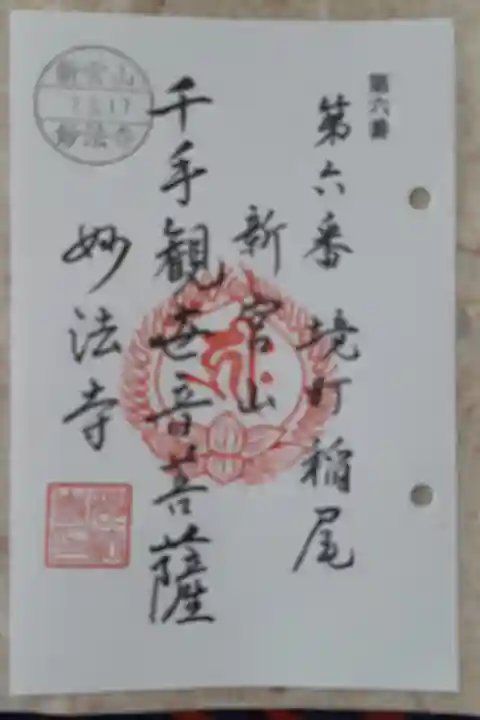 第六番
第六番 境町稲尾
新宮山
千手観世音菩薩
妙法寺
新宮山
妙法寺